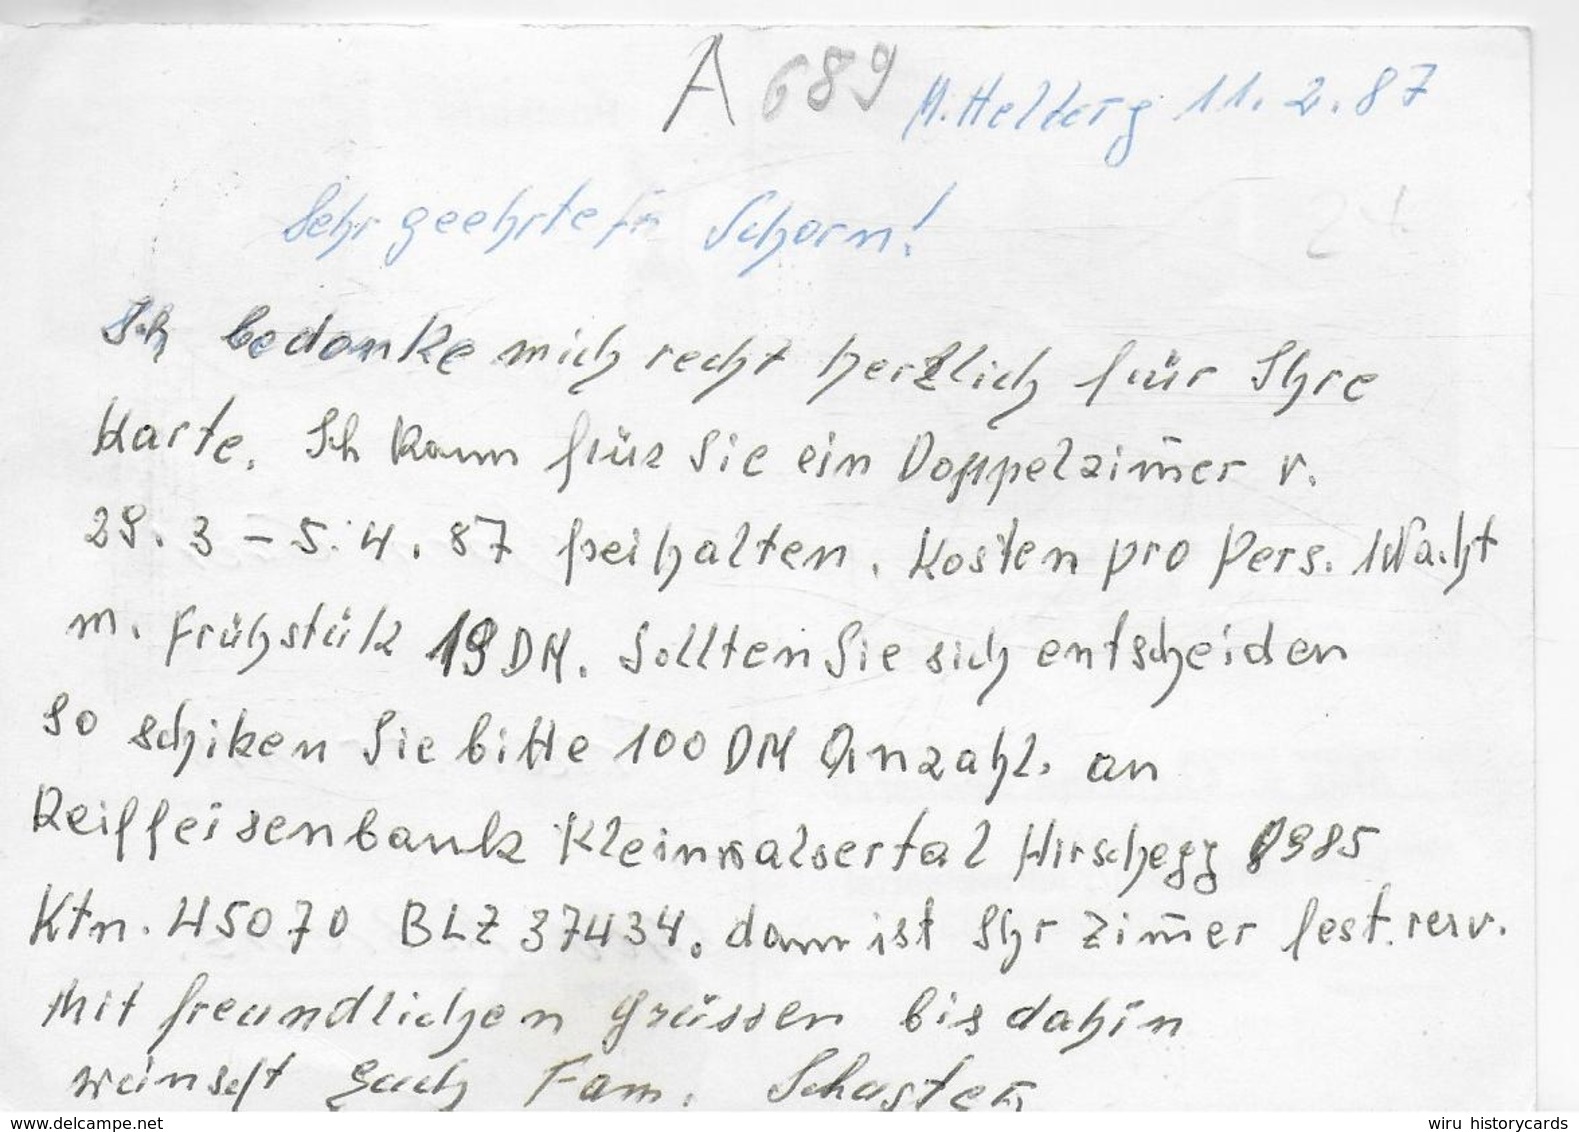 A 689 Mittelberg 11. 2. 87
Sehr geehrte Fr Schorn!
Ich bedanke mich recht herzlich für Ihre
Karte. Ich kann für Sie ein Doppelzim̄er v.
29. 3 – 5. 4. 87 freihalten. Kosten pro Pers. 1 Nacht
m. Frühstük 19 DM. Sollten Sie sich entscheiden
so schiken Sie bitte 100 DM Anzahl. an
Reiffeisenbank Kleinwalsertal Hirschegg 8985
Ktn. 45070 BLZ 37434. dann ist Ihr Zim̄er fest. resv.
Mit freundlichen Grüssen bis dahin
wünscht Euch Fam. Schuster
delcampe.net
wiru historycards